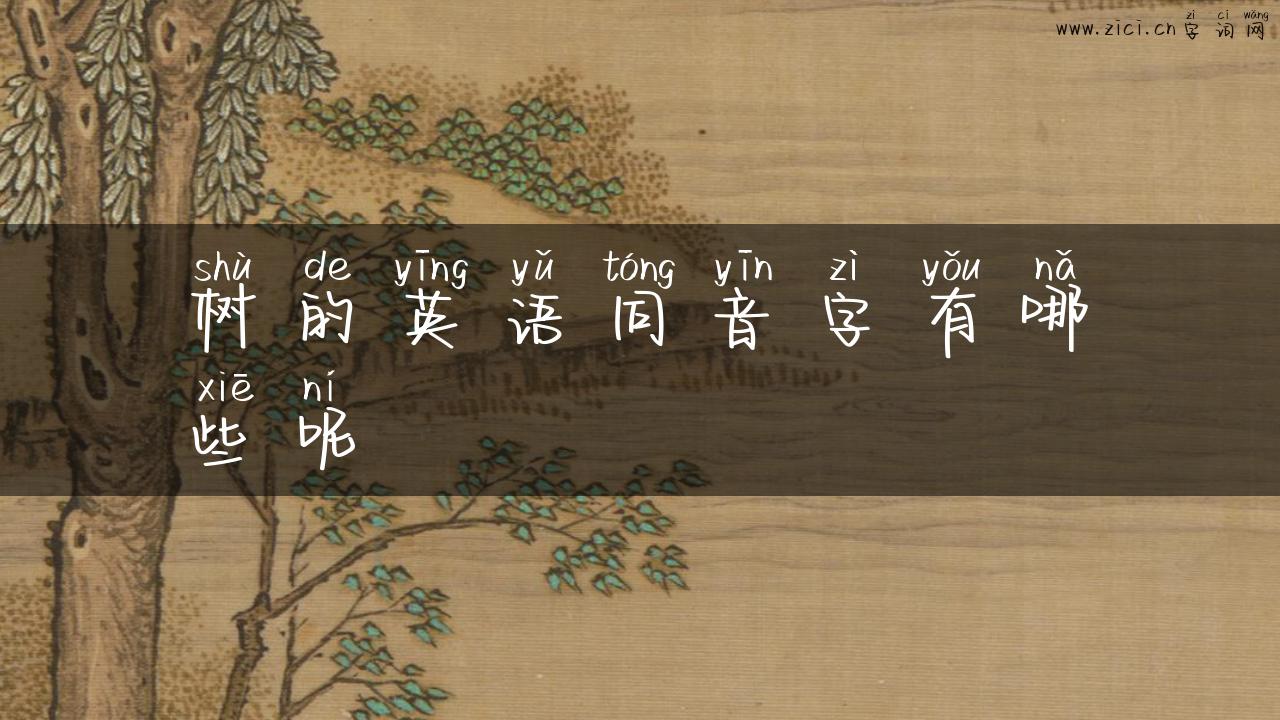 zì cí wǎng
www.zici.cn 字词网
shù de yīng yǔ tóng yīn zì yǒu nǎ
树的英语同音字有哪
xiē ní
些呢